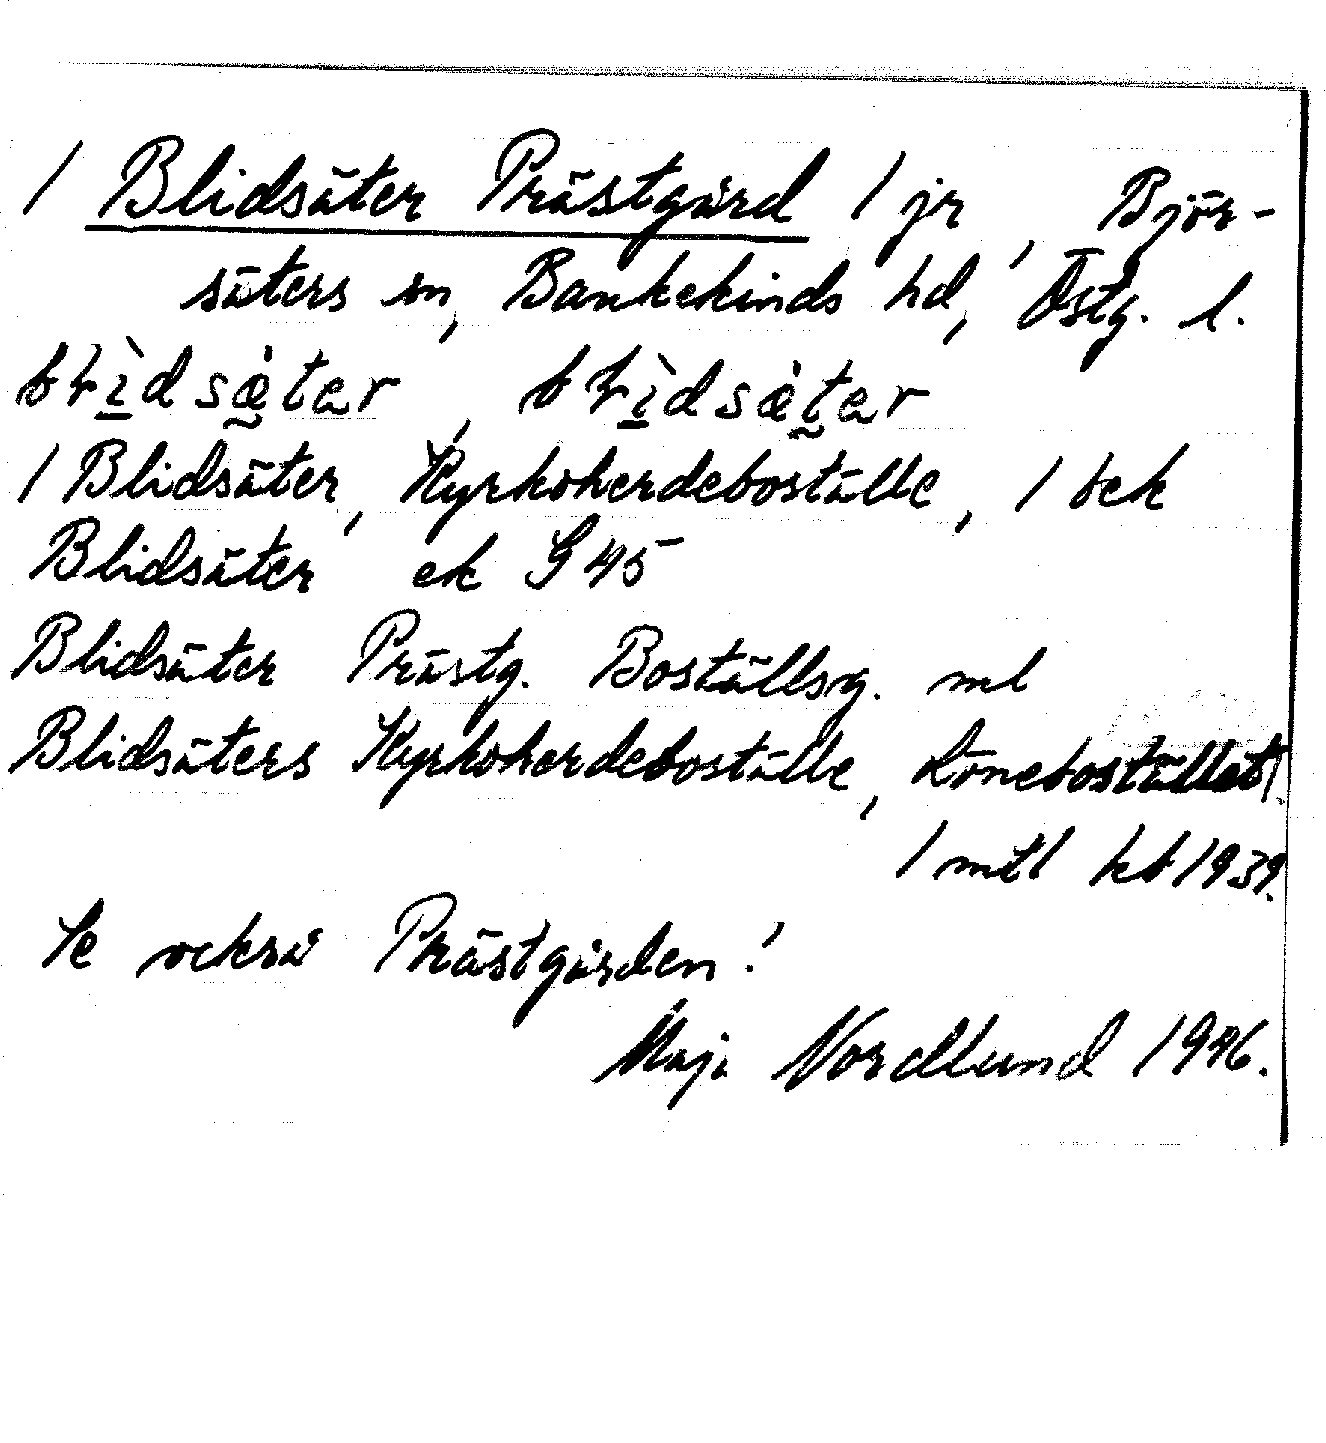 / Blidsäter Prästgård / jr, Björ-
säters sn, Bankekinds hd, Östg. l.
/ Blidsäter, Kyrkoherdeboställe, / bek
Blidsäter ek G 45
Blidsäter Prästg. Boställsg. ml
Blidsäters Kyrkoherdeboställe, Lönebostället,
1 mtl kb 1939.
Se också Prästgården!
Maja Nordlund 1946.